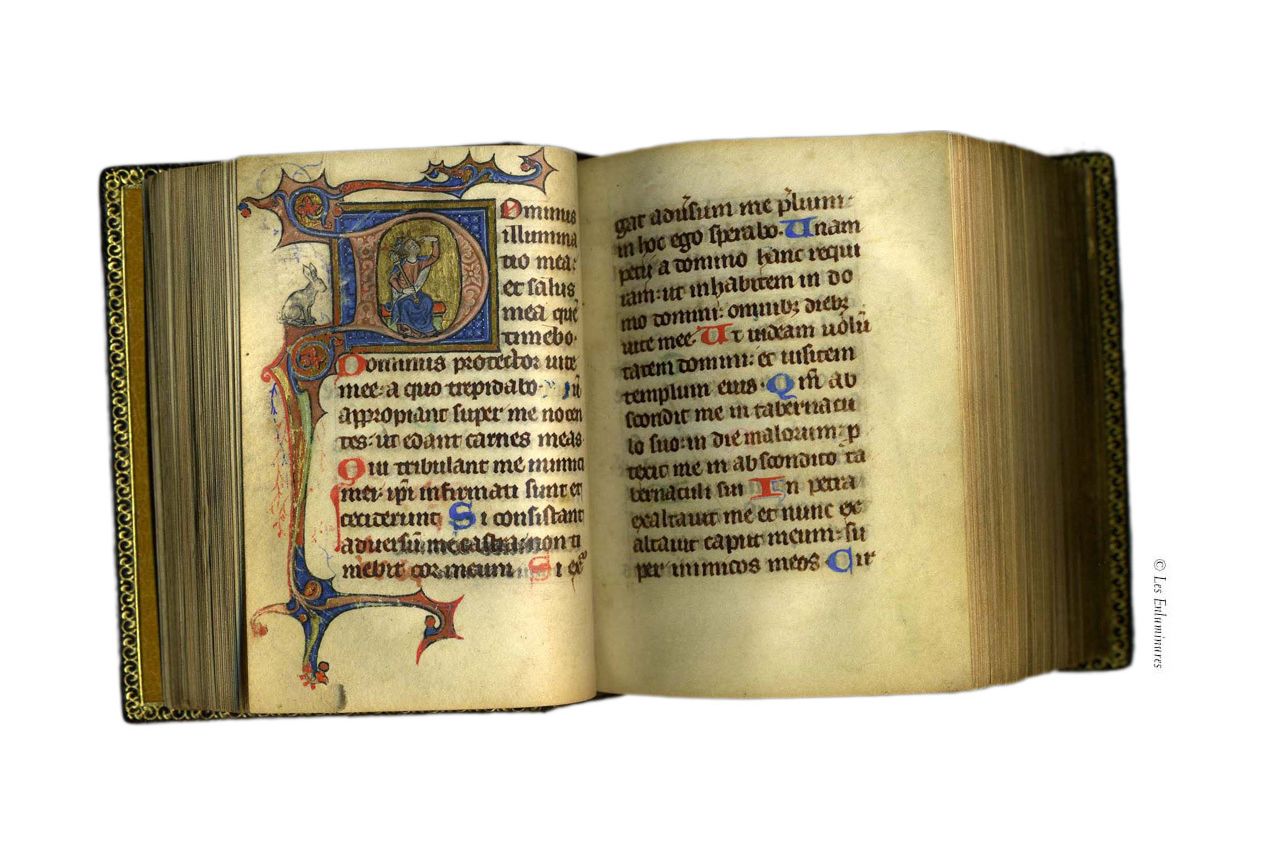 Dominus
illumina
tio mea:
et salus
mea que
timebo.
Dominus protector uite
mee: a quo trepidabo.
appropiant super me nocen
tes: ut edant carnes meas.
Qui tribulant me inimici
mei: ipi infirmati sunt et
ceciderunt Si consistant
aduersu me castra: non ti
mebit cor meum Si ex
gat adusum me plium:
in hoc ego sperabo. Unam
petii a domino hanc requi
ram: ut inhabitem in do
mo domini: omnibz diebz
uite mee. Ut uideam uolu
tatem domini: et uisitem
templum eius. Qm ab
scondit me in tabernacu
lo suo: in die malorum: p
texit me in abscondito ta
bernaculi sui In petra
exaltauit me et nunc ex
altauit caput meum: su
per inimicos meos Cir
© Les Enluminures